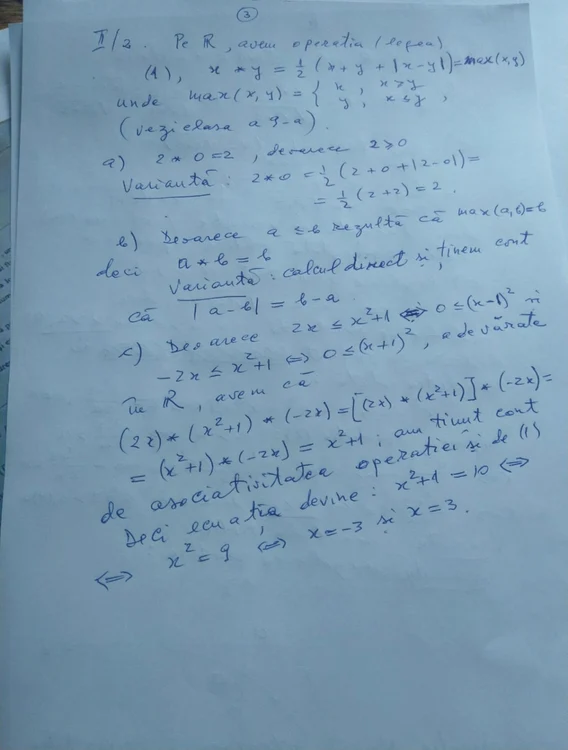 ③
II/2. Pe ℝ, avem operația (legea)
(1), x * y = 1/2 (x+y+|x-y|) = max(x,y)
unde max(x,y) = { x, x>y
y, x≤y,
(vezi clasa a 9-a).
a) 2 * 0 = 2, deoarece 2 ≥ 0
Variantă: 2*0 = 1/2 (2+0+|2-0|) =
= 1/2 (2+2) = 2.
b) Deoarece a ≤ b rezultă că max(a,b)=b
deci a * b = b
Variantă: calcul direct și ținem cont
că |a-b| = b-a.
c) Deoarece 2x ≤ x²+1 ⟺ 0 ≤ (x-1)² și
-2x ≤ x²+1 ⟺ 0 ≤ (x+1)², adevărate
în ℝ, avem că
(2x) * (x²+1) * (-2x) = [(2x) * (x²+1)] * (-2x) =
= (x²+1) * (-2x) = x²+1; am ținut cont
de asociativitatea operației și de (1)
Deci ecuația devine: x²+1 = 10 ⟺
⟺ x² = 9 ⟺ x = -3 și x = 3.